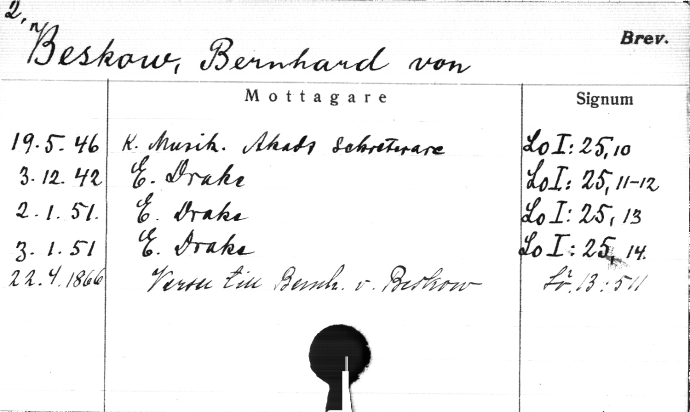 2,
Beskow, Bernhard von Brev.
Mottagare Signum
19.5.46 K. Musik. Akads sekreterare Lo I: 25,10
3.12.42 E. Drake Lo I: 25,11-12
2.1.51. E. Drake Lo I: 25,13
3.1.51 E. Drake Lo I: 25,14.
22.4.1866 Verse till Bernh. v. Beskow 13:511